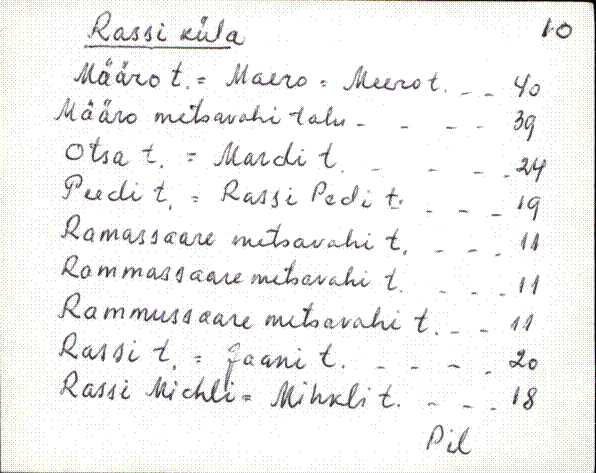 Rassi küla 10
Määro t. = Maero = Meero t. - - 40
Määro metsavahi talu - - - - 39
Otsa t. = Mardi t. - - - - 24
Peedi t. = Rassi Pedi t. - - - 19
Ramassaare metsavahi t. - - - 11
Rammassaare metsavahi t. - - - 11
Rammussaare metsavahi t. - - 11
Rassi t. = Jaani t. - - - - 20
Rassi Michli = Mihkli t. - - - 18
Pil